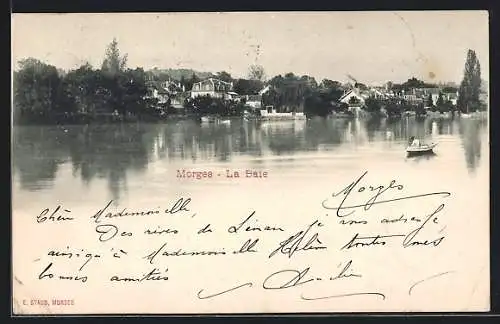 Morges - La Baie
Morges
Chère Mademoiselle,
Des rives de Léman je vous adresse
ainsi qu'à Mademoiselle Hélène toutes mes
bonnes amitiés
E. STAUB, MORGES